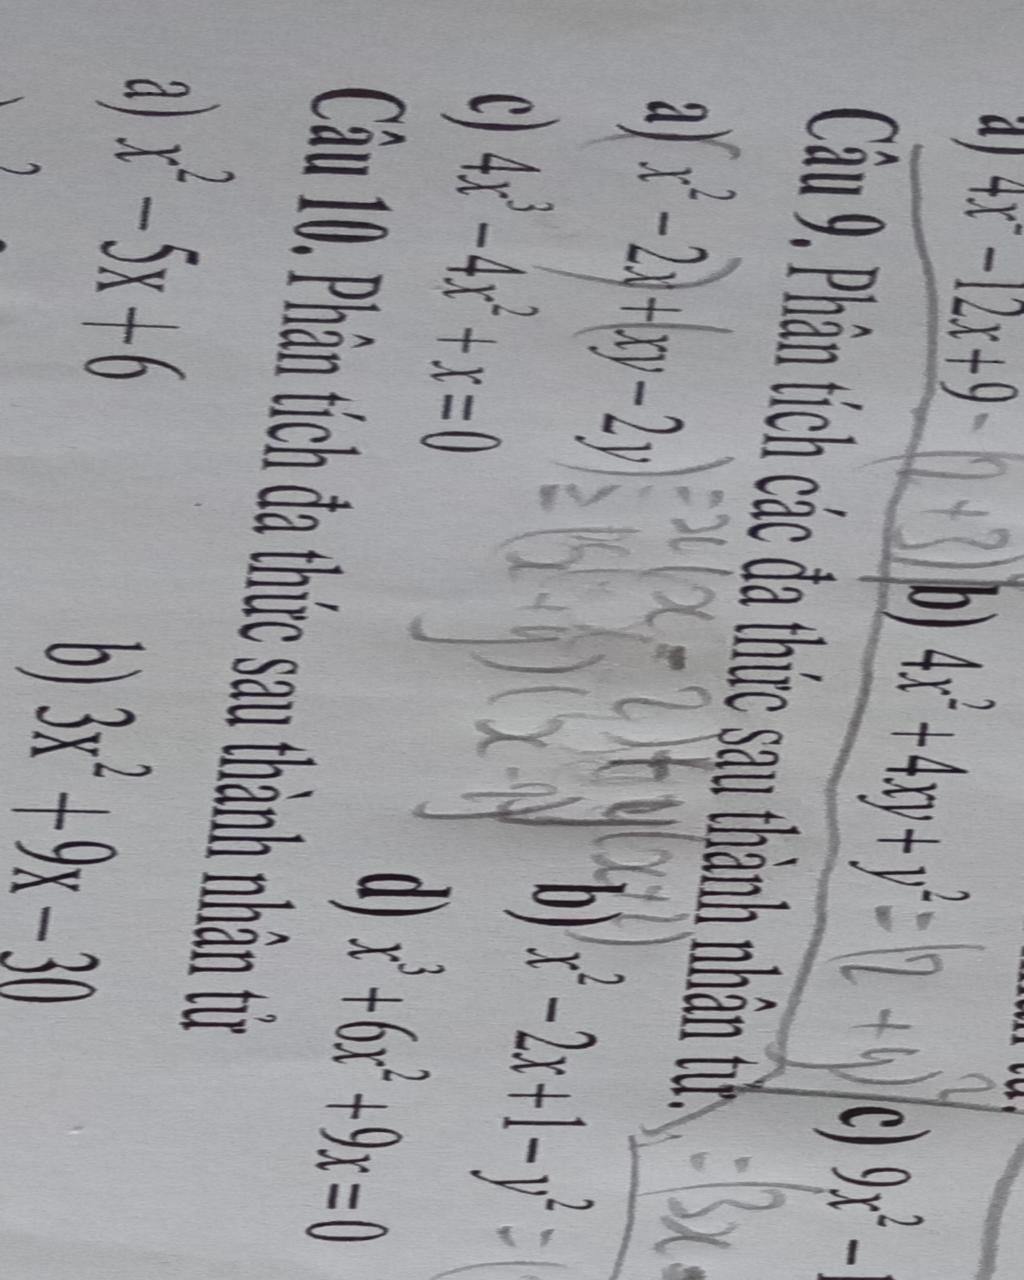 a) 4x² - 12x + 9 b) 4x² + 4xy + y² = (2 + y)² c) 9x² -
Câu 9. Phân tích các đa thức sau thành nhân tử.
a) (x² - 2x) + (xy - 2y) = x(x - 2) + y(x b) x² - 2x + 1 - y² =
= (x + y)(x
c) 4x³ - 4x² + x = 0 d) x³ + 6x² + 9x = 0
Câu 10. Phân tích đa thức sau thành nhân tử
a) x² - 5x + 6 b) 3x² + 9x - 30